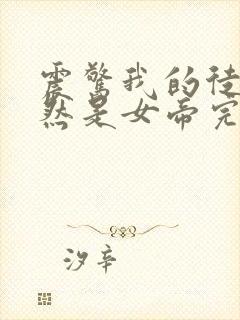 震惊我的徒
然是女帝完
汐辛